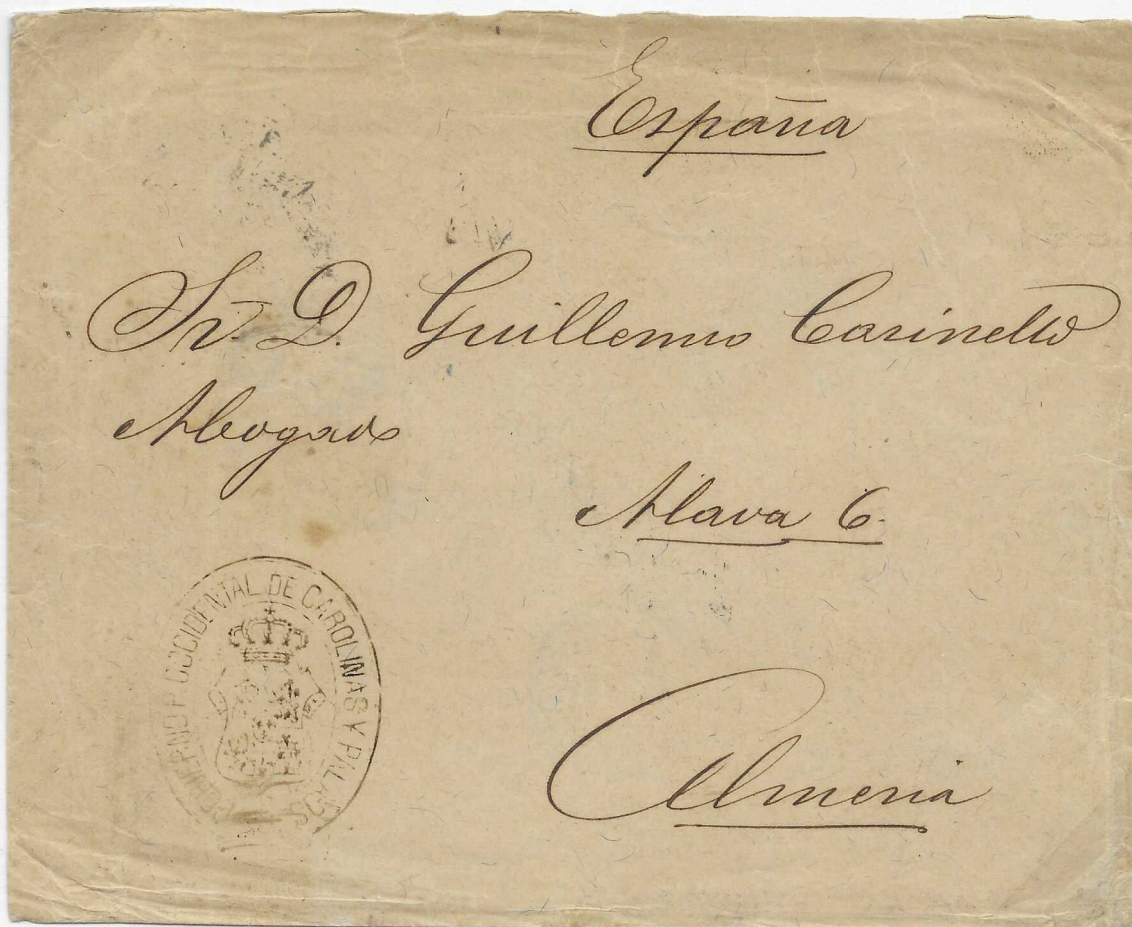 España
Sr. D. Guillermo Carinetto
Abogado
Alava 6.
GOBIERNO P. OCCIDENTAL DE CAROLINAS Y PALAOS
Almeria